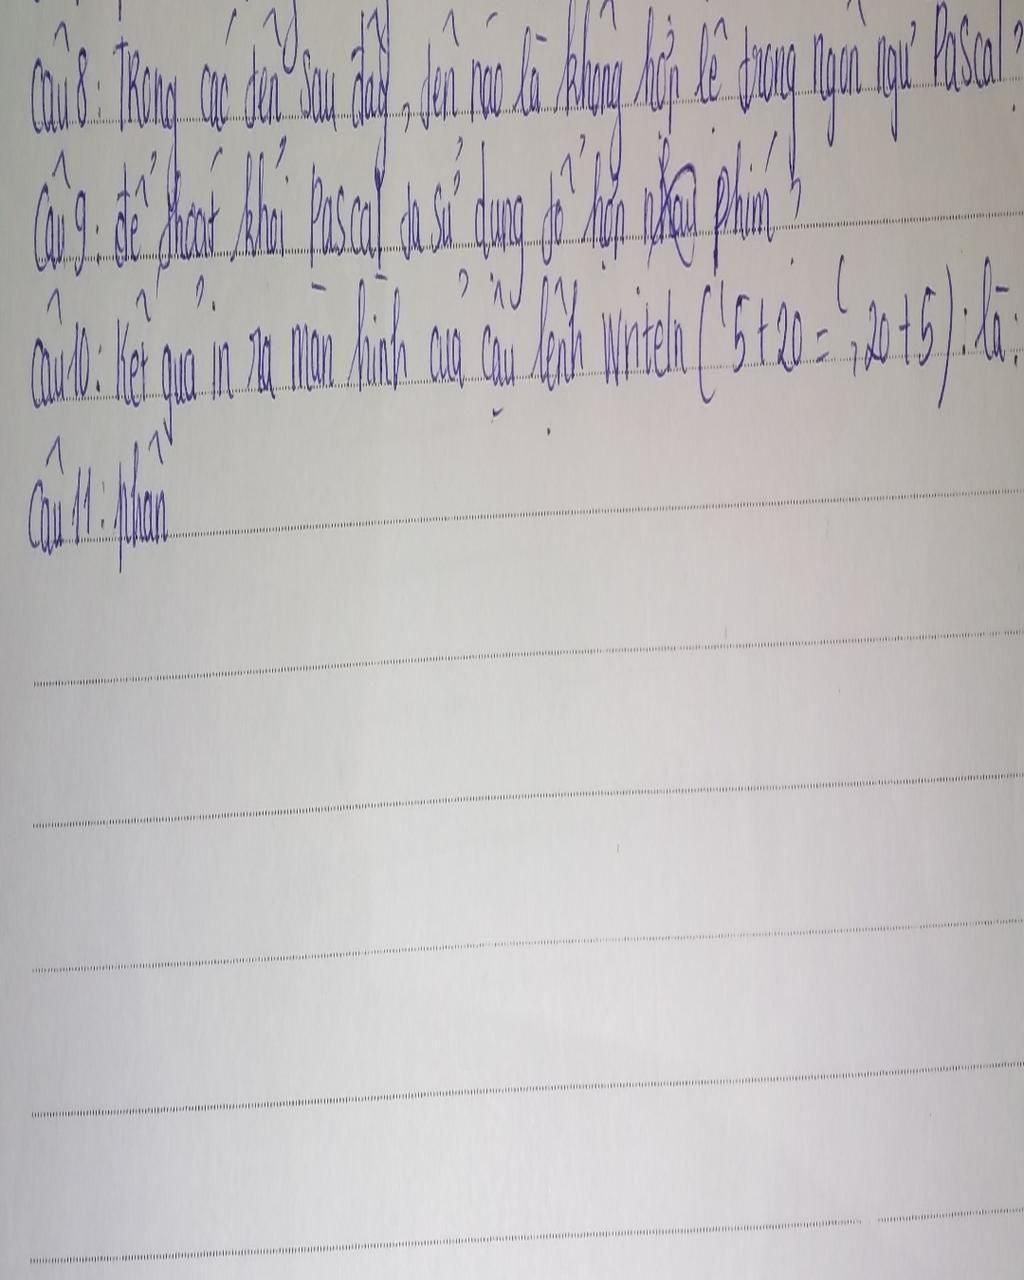 Câu 8: Trong các tên sau đây, tên nào là không hợp lệ trong ngôn ngữ Pascal?
Câu 9: để thoát khỏi Pascal ta sử dụng tổ hợp phím?
Câu 10: Kết quả in ra màn hình của câu lệnh Writeln ('5+20=', 20+5): là:
Câu 11: phần